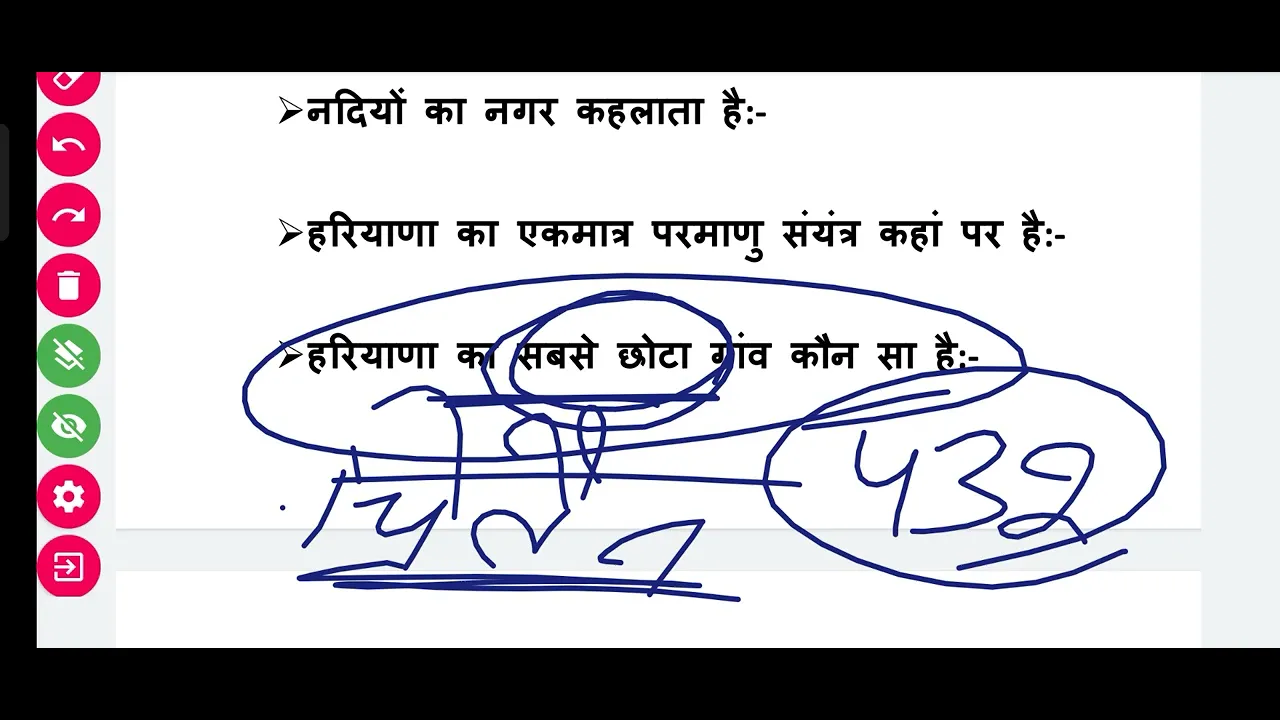 ➢नदियों का नगर कहलाता है:-
➢हरियाणा का एकमात्र परमाणु संयंत्र कहां पर है:-
➢हरियाणा का सबसे छोटा गांव कौन सा है:-
432